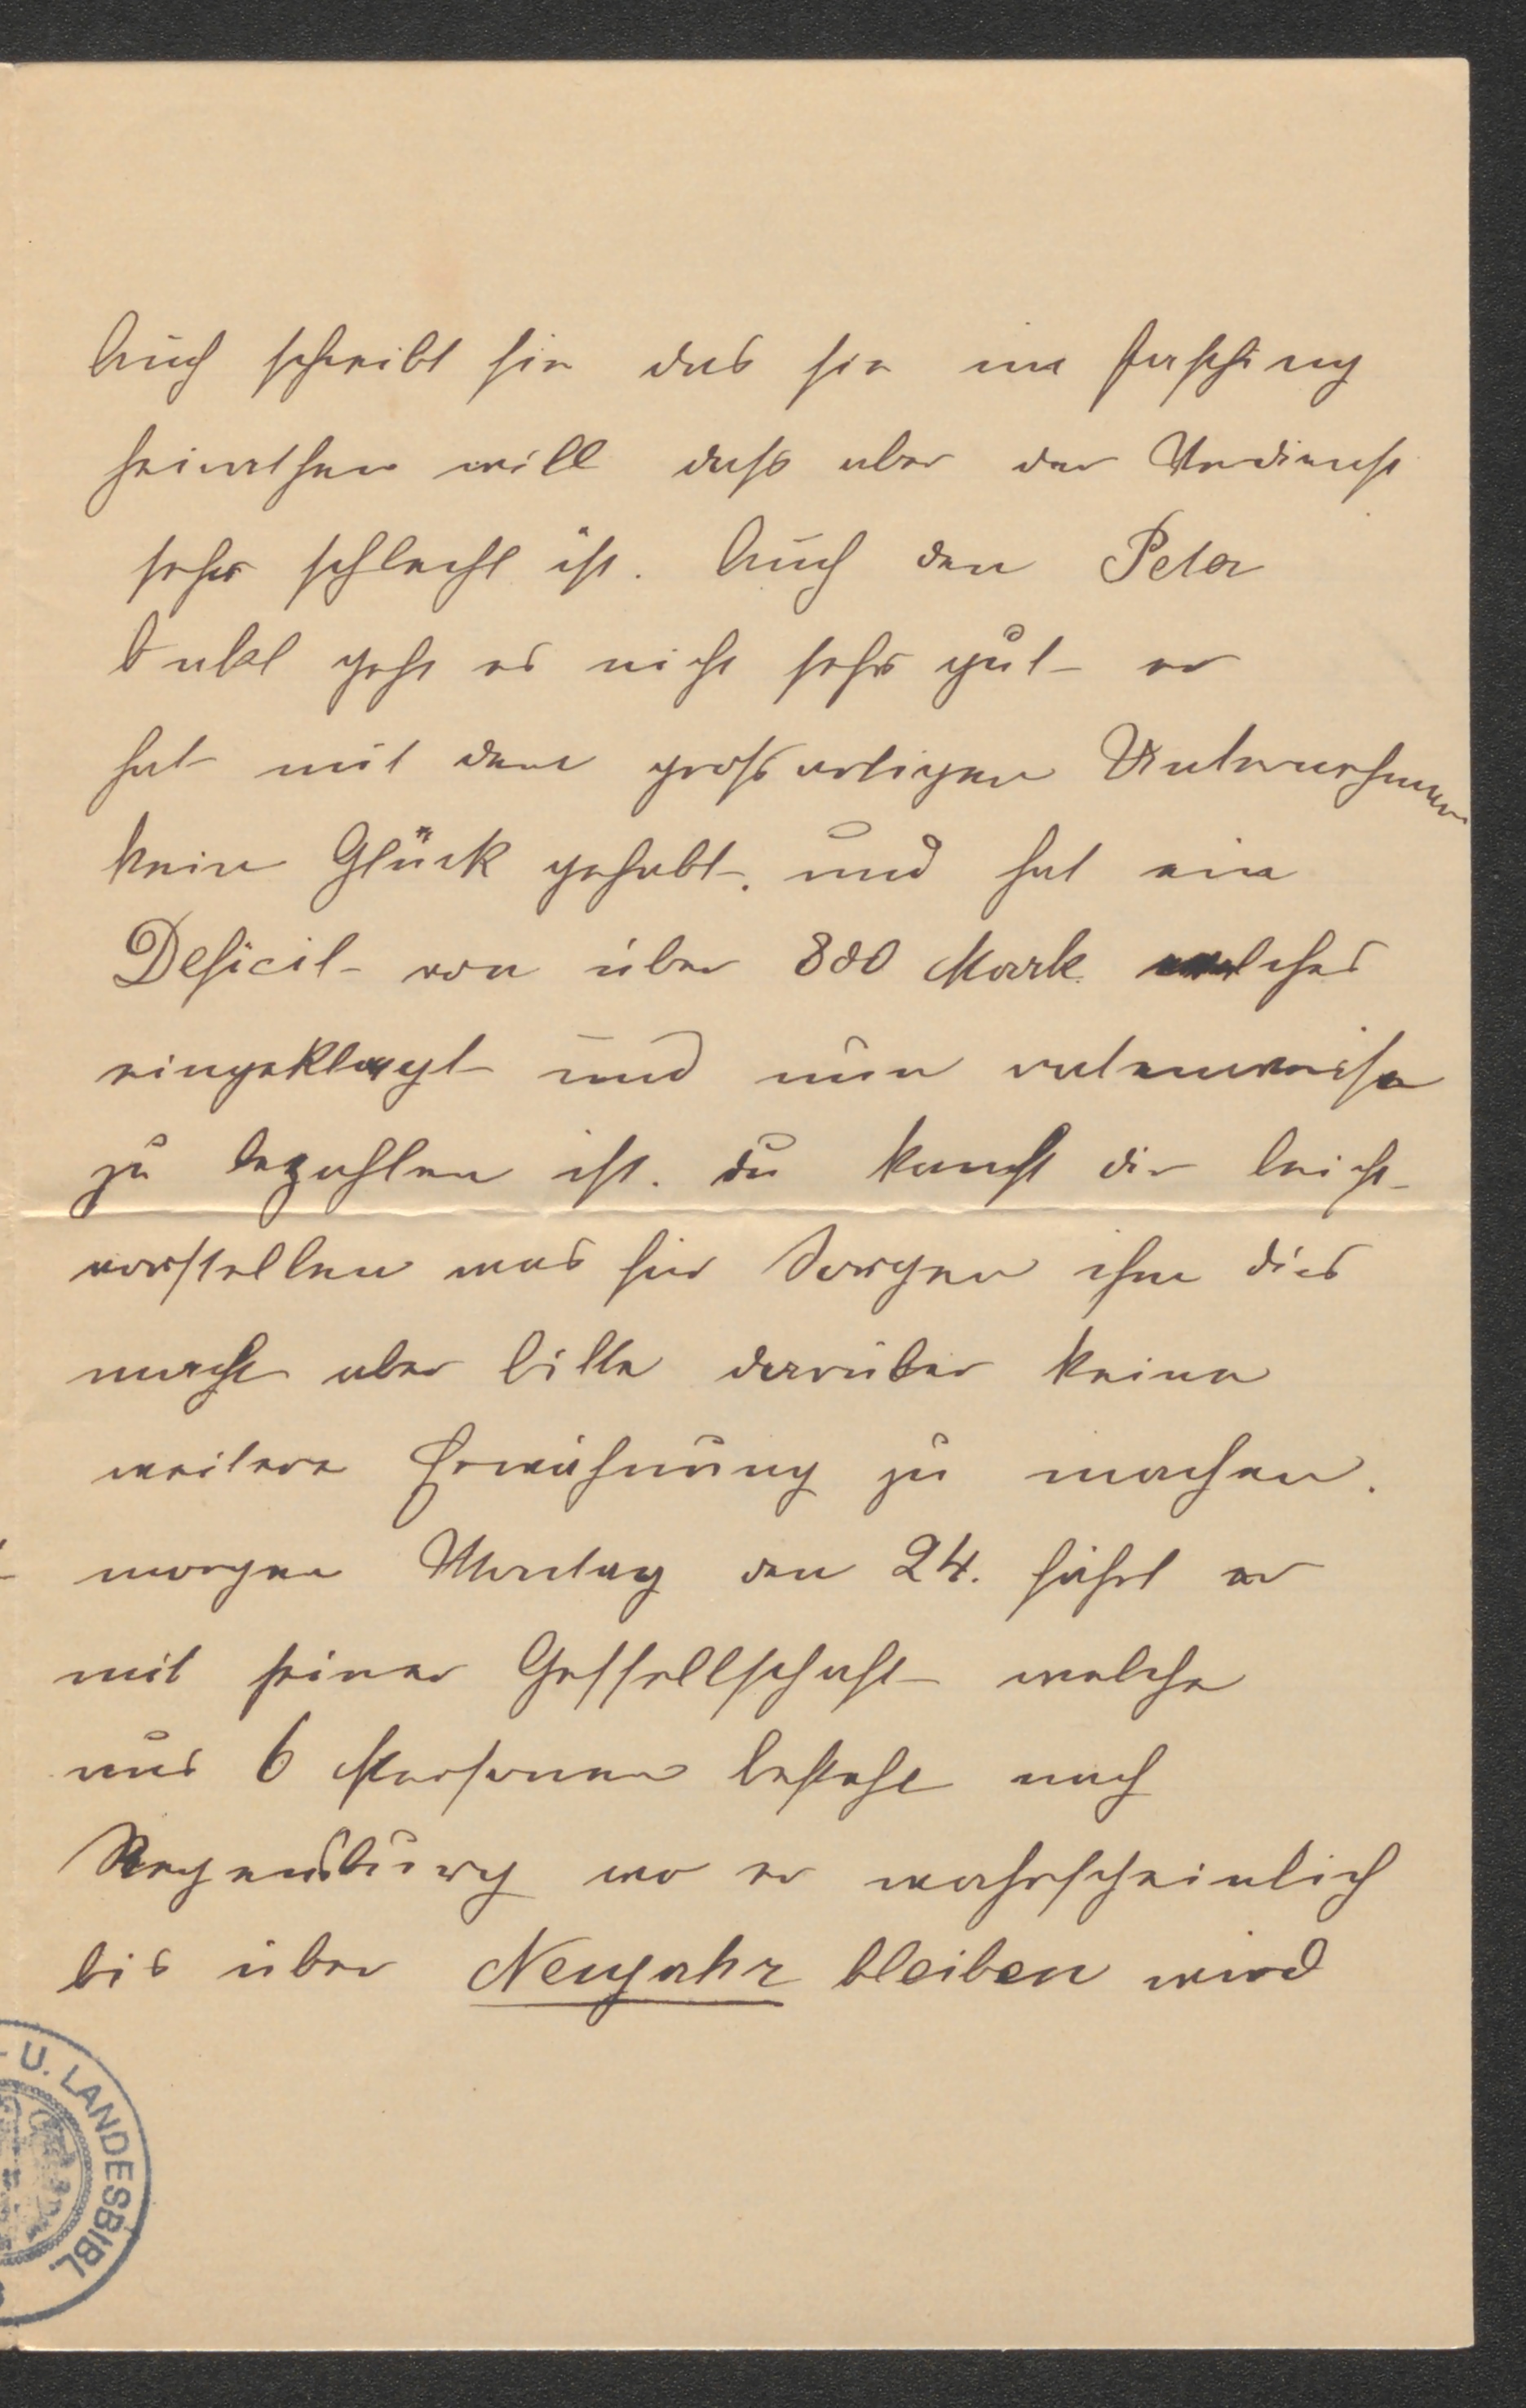 Auch schreibt sie das sie im Fasching
heirathen will daß aber der Verdienst
sehr schlecht ist. Auch den Peter
geht es nicht sehr gut er
hat mit dem großartigen Unternehmen
kein Glück gehabt. und hat ein
Deficit von über 800 Mark welches
eingeklagt und nun ratenweise
zu bezahlen ist. du kannst dir leicht
vorstellen was für Sorgen ihm dies
macht aber bitte darüber keine
weitere Erwähnung zu machen.
morgen Montag den 24. fährt er
mit seiner Gessellschaft welche
aus 6 Personen besteht nach
Regensburg wo er wahrscheinlich
bis über Neujahr bleiben wird
U. LANDESBIBL.